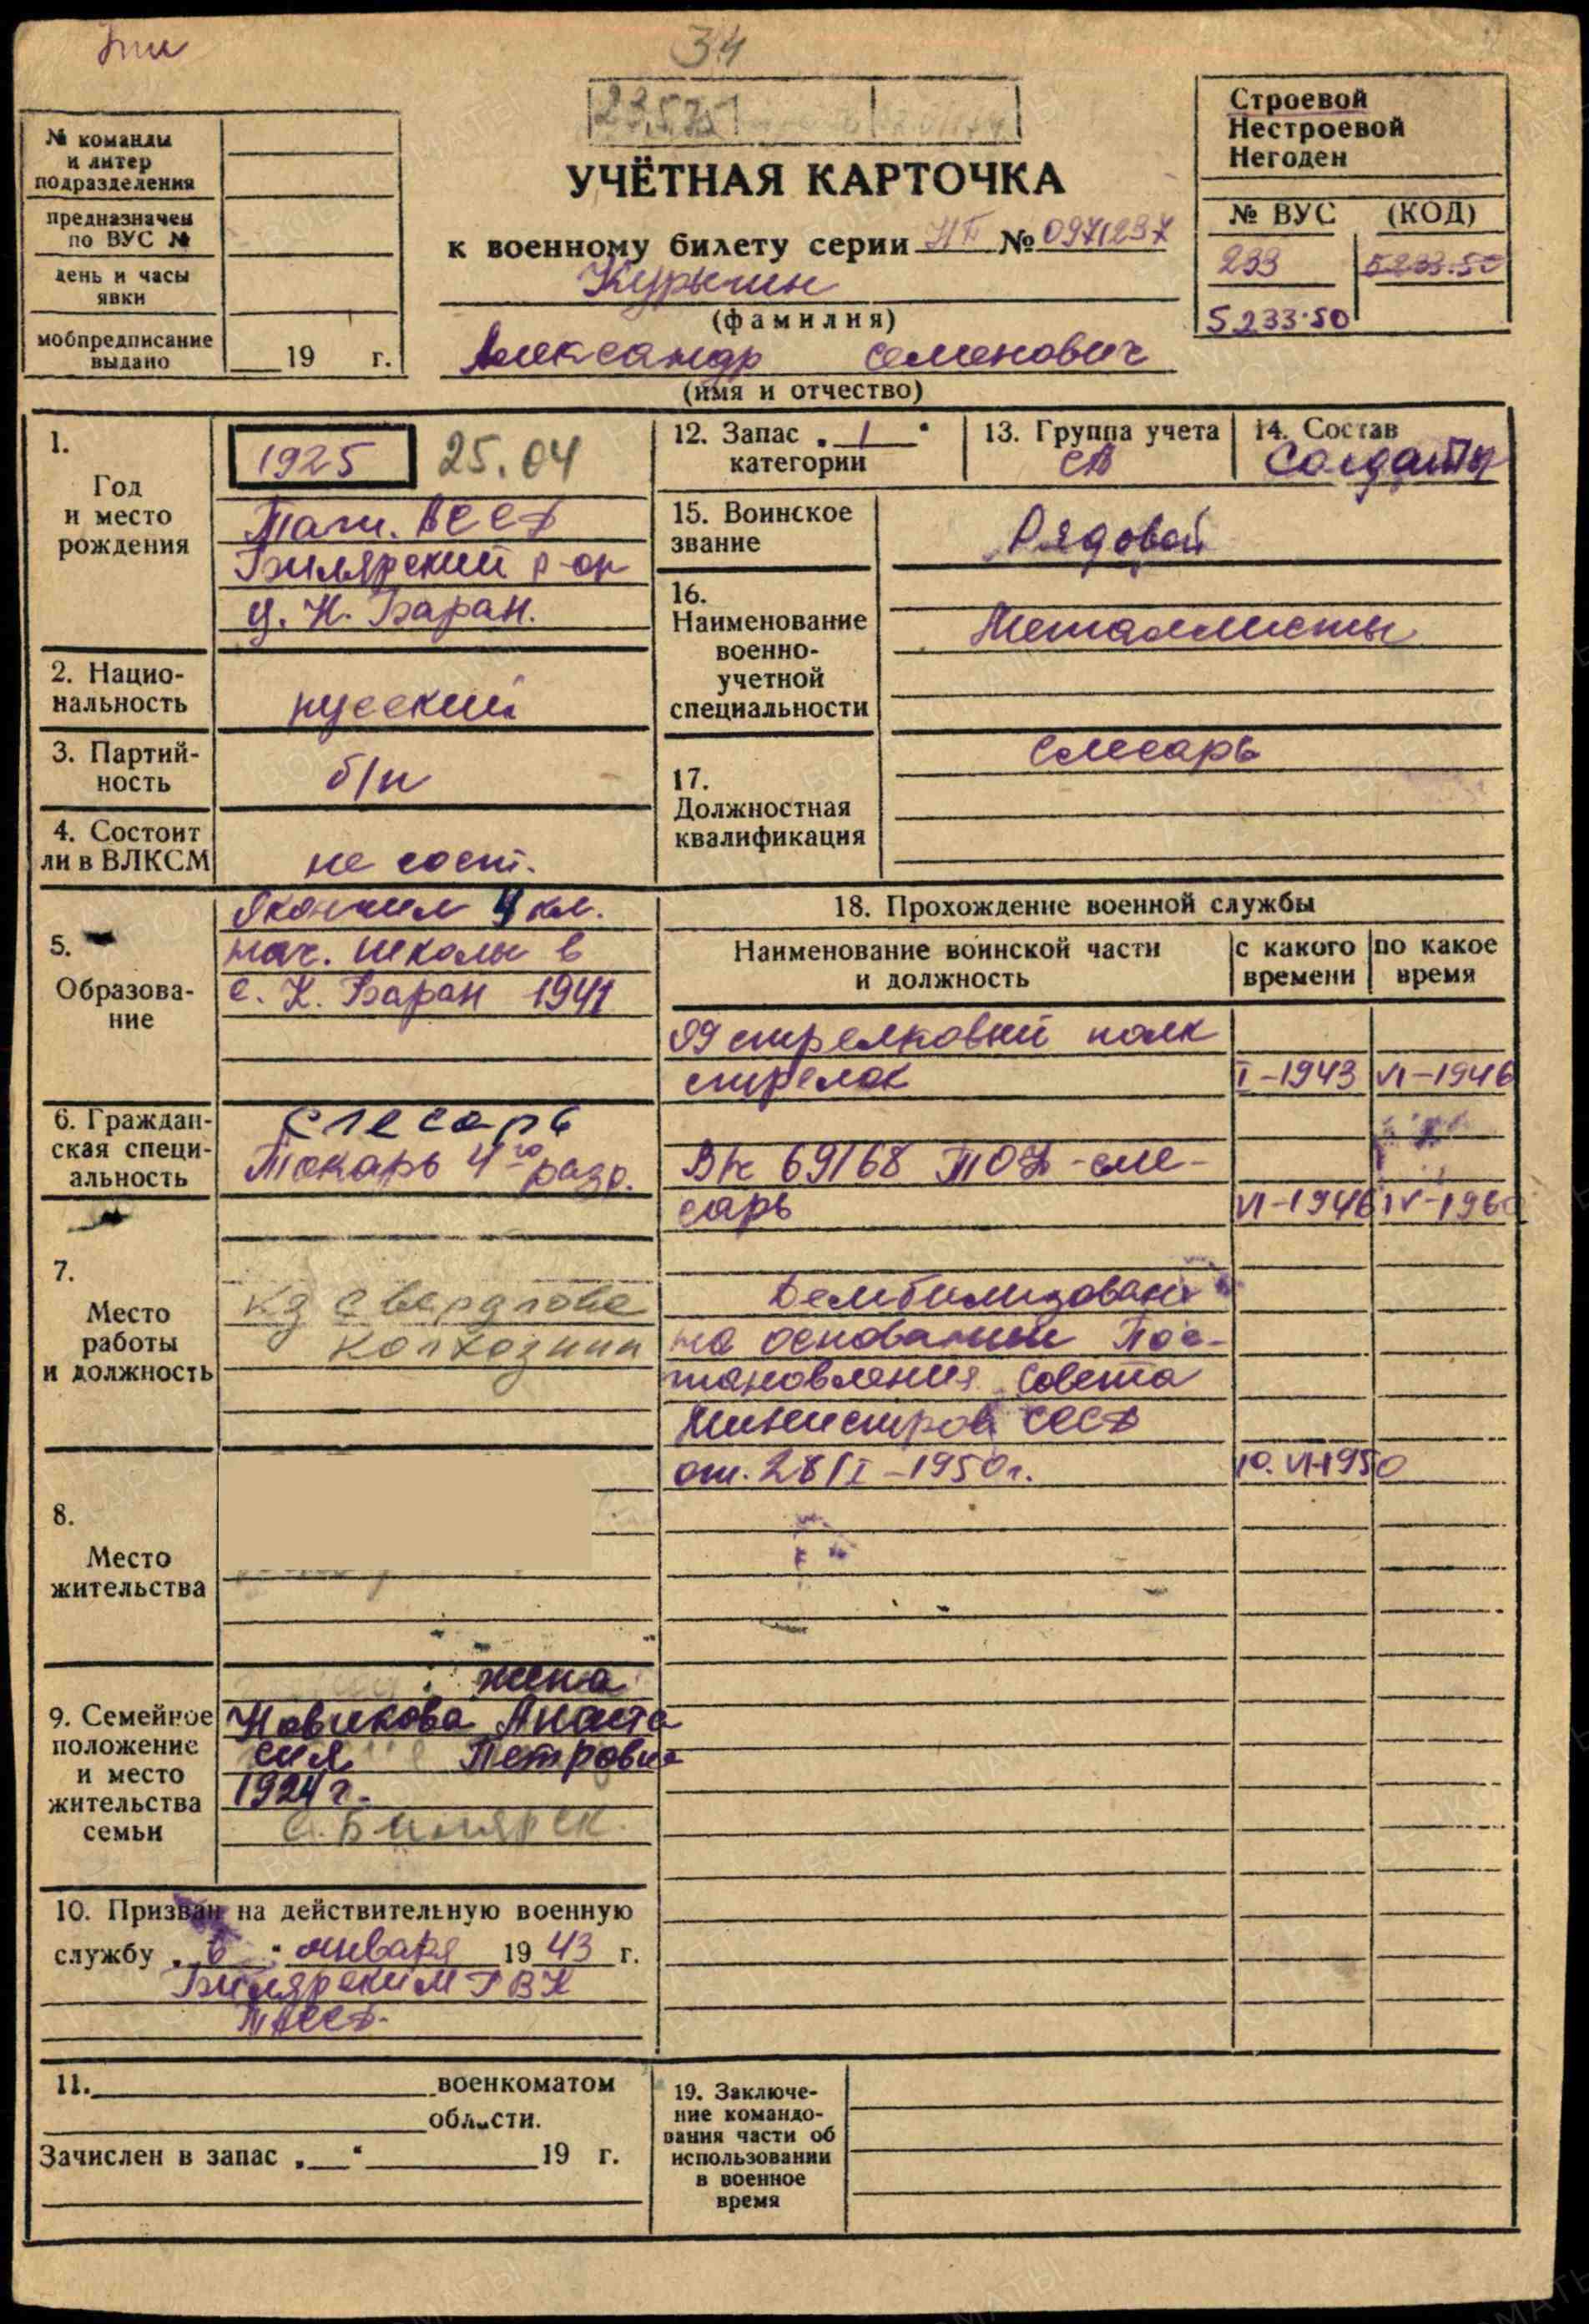 34
23,575
№ команды
и литер
подразделения
предназначен
по ВУС №
день и часы
явки
мобпредписание
выдано
19 г.
УЧЁТНАЯ КАРТОЧКА
к военному билету серии НП № 0971237
Курынин
(фамилия)
Александр Семенович
(имя и отчество)
Строевой
Нестроевой
Негоден
№ ВУС (КОД)
233 5233.50
5233.50
1.
Год
и место
рождения
1925 25.04
Тат. АССР
Билярский р-он
Н. Баран.
2. Нацио-
нальность
русский
3. Партий-
ность
б/п
4. Состоит
ли в ВЛКСМ
не сост.
5.
Образова-
ние
Окончил 4 кл.
нач. школы в
с. Н. Баран 1941
6. Граждан-
ская специ-
альность
слесарь
Токарь 4го разр.
7.
Место
работы
и должность
кз Свердлова
колхозник
8.
Место
жительства
9. Семейное
положение
и место
жительства
семьи
жена
Новикова Анаста
сия Петровна
1924 г.
с. Билярск.
10. Призван на действительную военную
службу „6“ января 1943 г.
Билярским РВК
ТАССР.
11. военкоматом
области.
Зачислен в запас „ “ 19 г.
12. Запас „1“
категории
13. Группа учета
СА
14. Состав
Солдаты
15. Воинское
звание
Рядовой
16.
Наименование
военно-
учетной
специальности
Металлисты
17.
Должностная
квалификация
слесарь
18. Прохождение военной службы
Наименование воинской части
и должность
с какого
времени
по какое
время
99 стрелковый полк
стрелок I-1943 VI-1946
69168 -сле-
сарь VI-1946 IV-1950
Демобилизован
на основании Пос-
тановления Совета
Министров СССР
от. 28/I-1950г. 10.VI-1950
19. Заключе-
ние командо-
вания части об
использовании
в военное
время